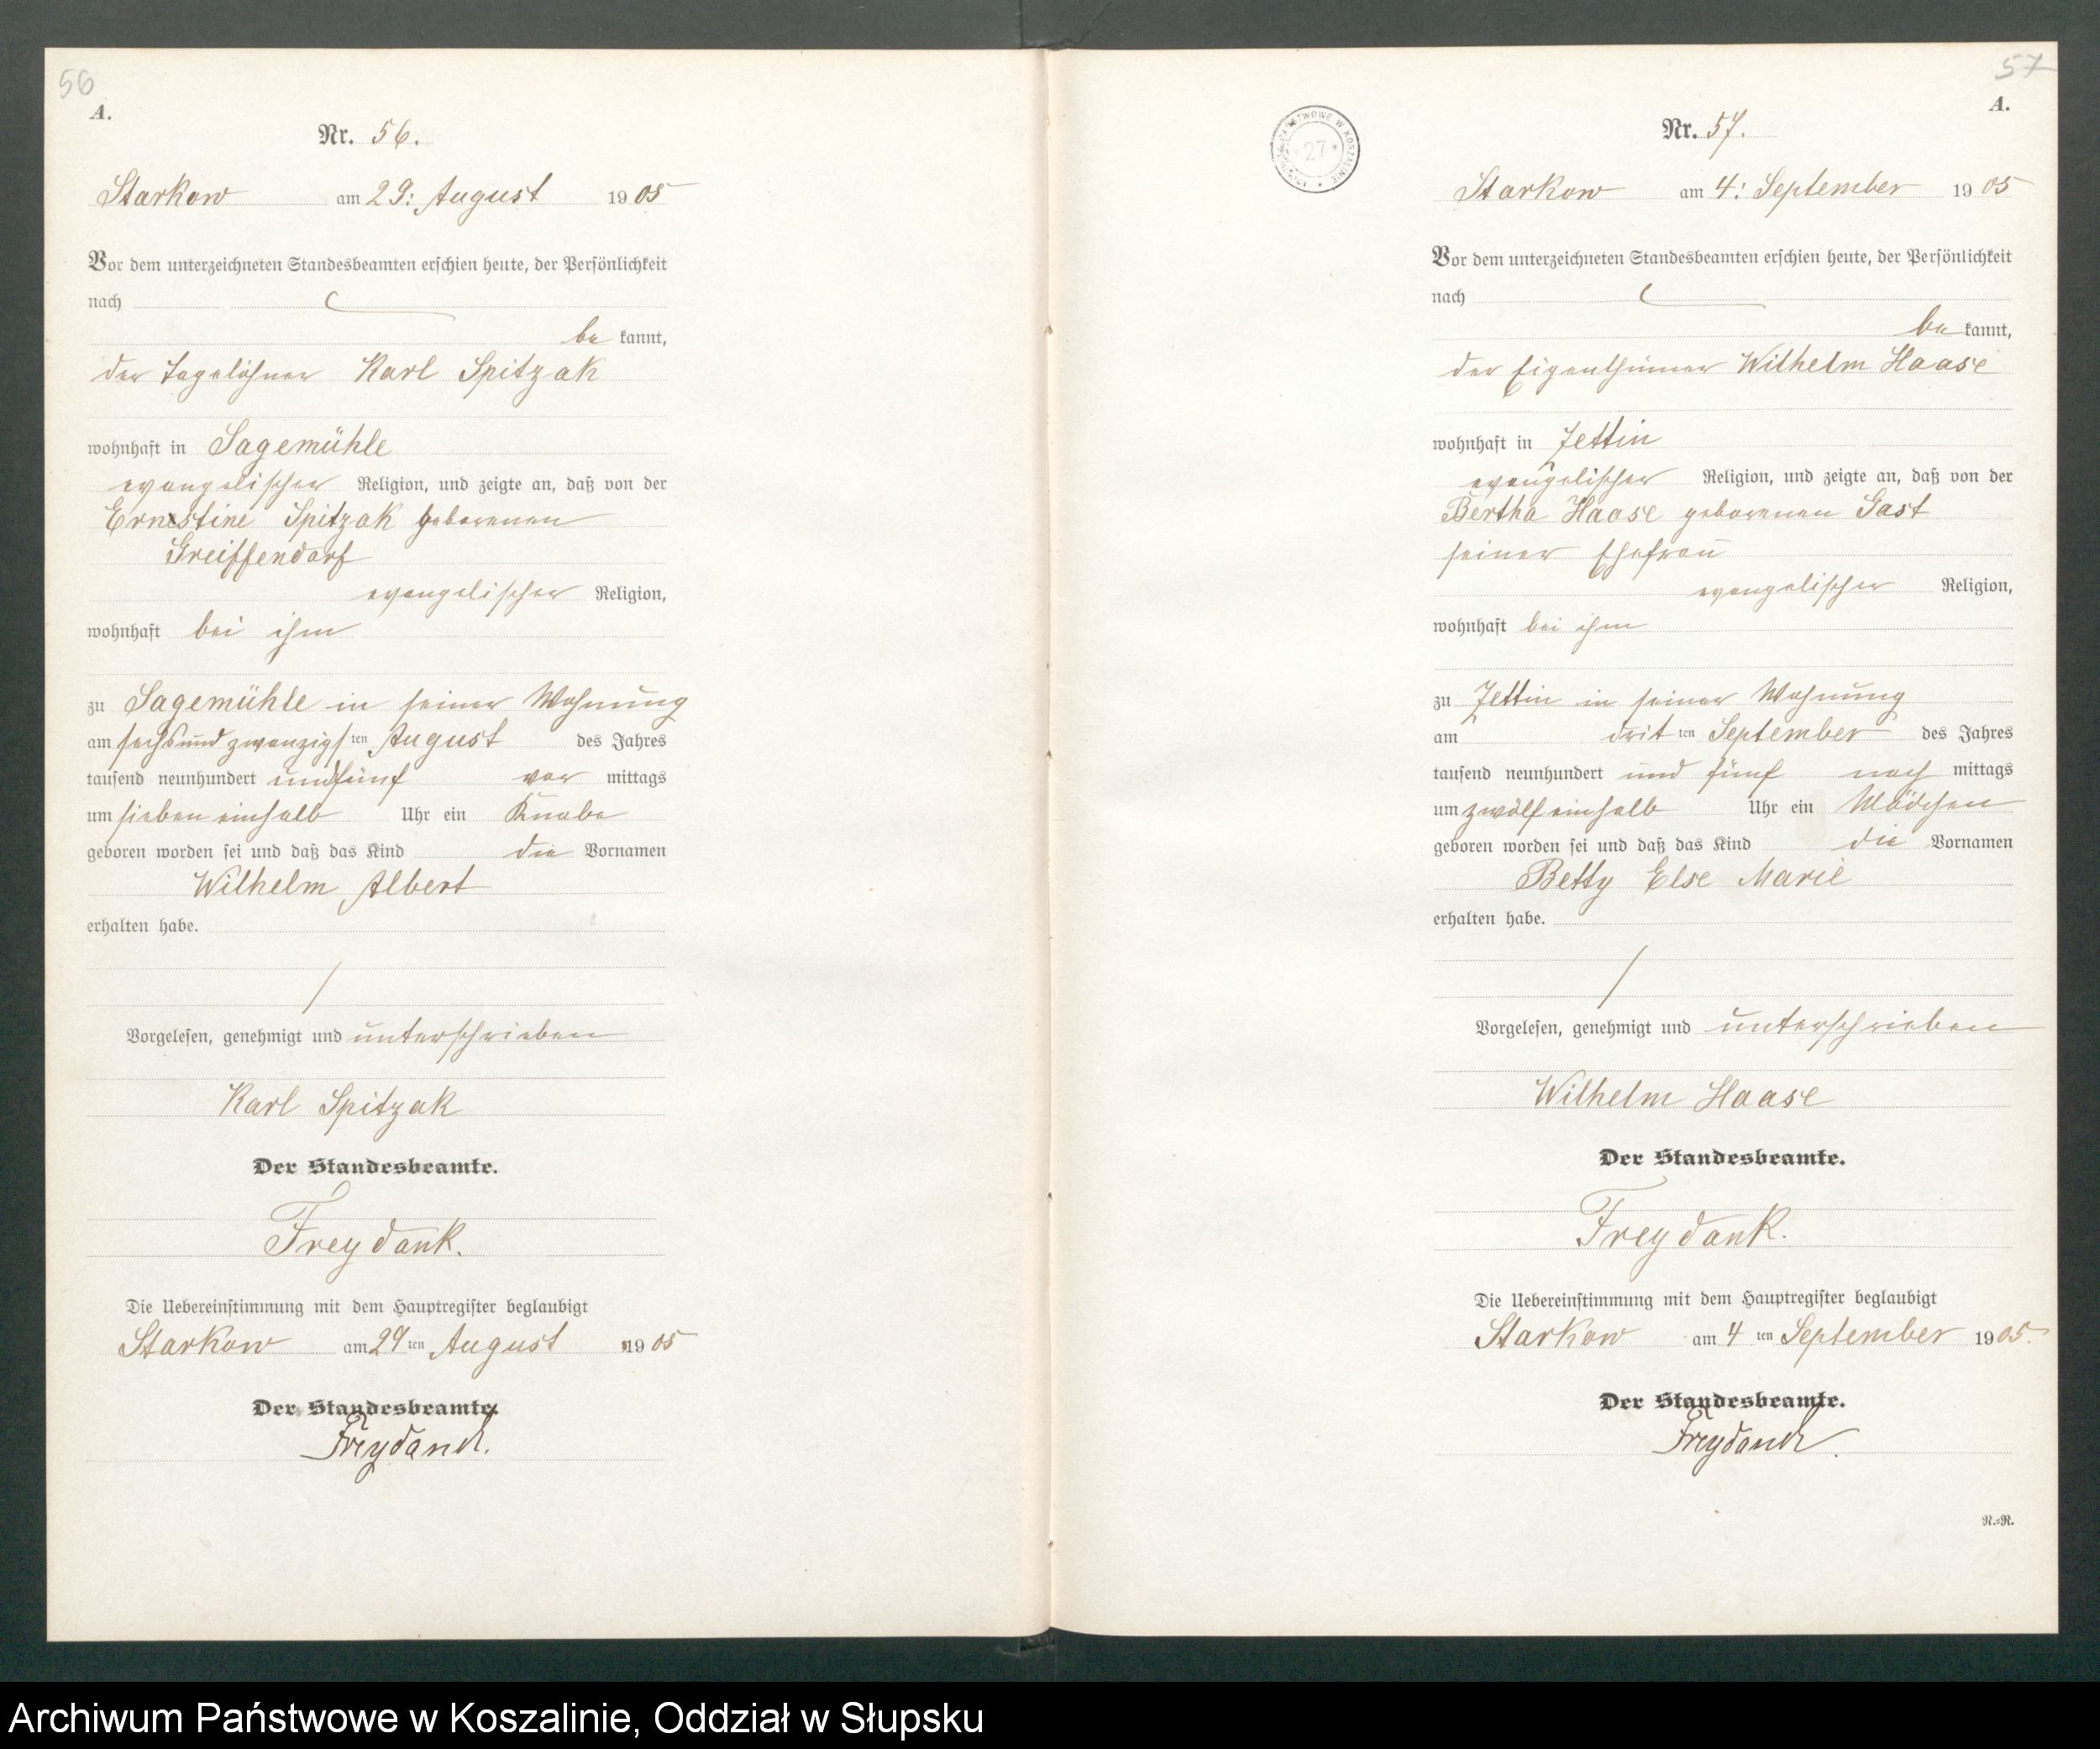 56
A.
Nr. 56.
Starkow am 29: August 1905
Vor dem unterzeichneten Standesbeamten erschien heute, der Persönlichkeit
nach
be kannt,
der Tagelöhner Karl Spitzak
wohnhaft in Sagemühle
evangelischer Religion, und zeigte an, daß von der
Ernestine Spitzak geborenen
Greiffendorf
evangelischer Religion,
wohnhaft bei ihm
zu Sagemühle in seiner Wohnung
am sechsundzwanzigsten August des Jahres
tausend neunhundert und fünf vor mittags
um sieben einhalb Uhr ein Knabe
geboren worden sei und daß das Kind die Vornamen
Wilhelm Albert
erhalten habe.
Vorgelesen, genehmigt und unterschrieben
Karl Spitzak
Der Standesbeamte.
Freydank.
Die Uebereinstimmung mit dem Hauptregister beglaubigt
Starkow am 29ten August 1905
Der Standesbeamte.
Freydank.
57
A.
PAŃSTWOWE W KOSZALINIE
27
Nr. 57.
Starkow am 4: September 1905
Vor dem unterzeichneten Standesbeamten erschien heute, der Persönlichkeit
nach
be kannt,
der Eigenthümer Wilhelm Haase
wohnhaft in Jettin
evangelischer Religion, und zeigte an, daß von der
Bertha Haase geborenen Gast
seiner Ehefrau
evangelischer Religion,
wohnhaft bei ihm
zu Jettin in seiner Wohnung
am dritten September des Jahres
tausend neunhundert und fünf nach mittags
um zwölf einhalb Uhr ein Mädchen
geboren worden sei und daß das Kind die Vornamen
Betty Else Marie
erhalten habe.
Vorgelesen, genehmigt und unterschrieben
Wilhelm Haase
Der Standesbeamte.
Freydank.
Die Uebereinstimmung mit dem Hauptregister beglaubigt
Starkow am 4ten September 1905.
Der Standesbeamte.
Freydank.
N.=N.
Archiwum Państwowe w Koszalinie, Oddział w Słupsku